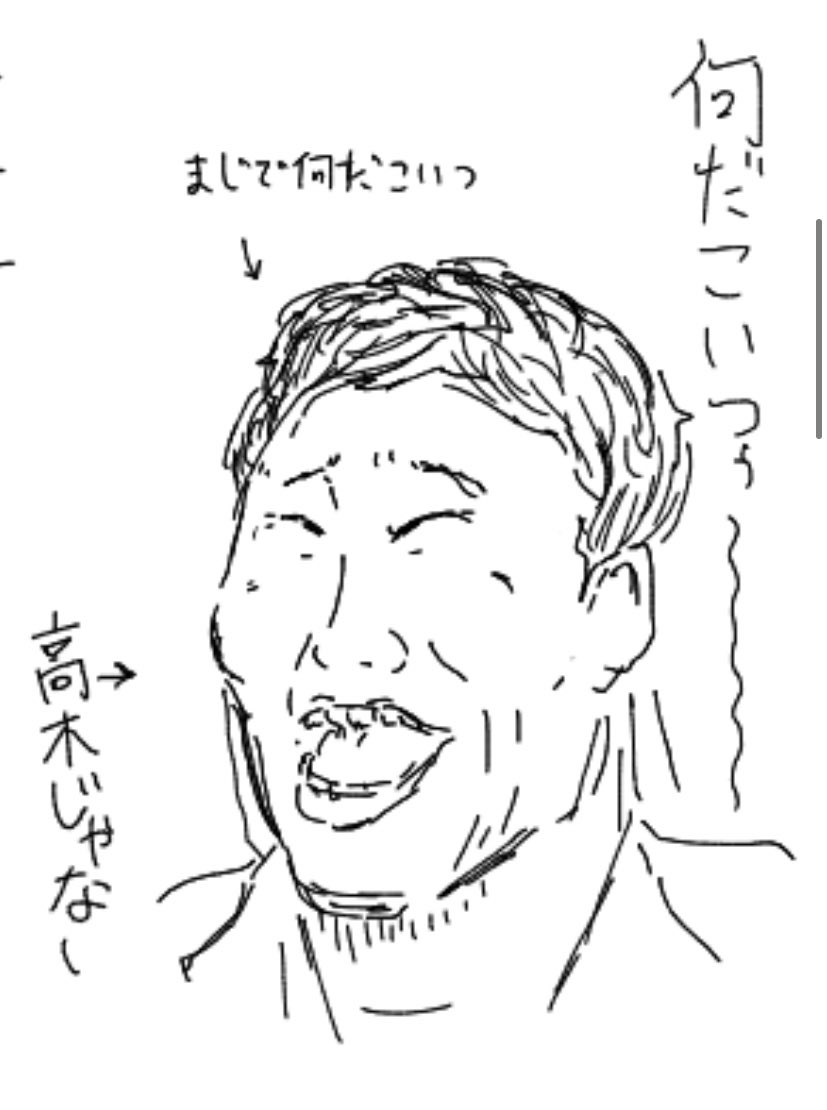 何だこいつぅ
まじで何だこいつ
高木じゃな